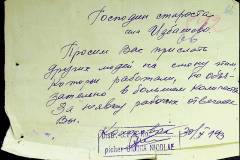 Господин староста
сел Избашово
Просим Вас прислать
других людей на смену тем
которые работали, но обя-
зательно в большем количестве
За неявку рабочих отвечаете
Вы.
30/XI 143
NICOLAE